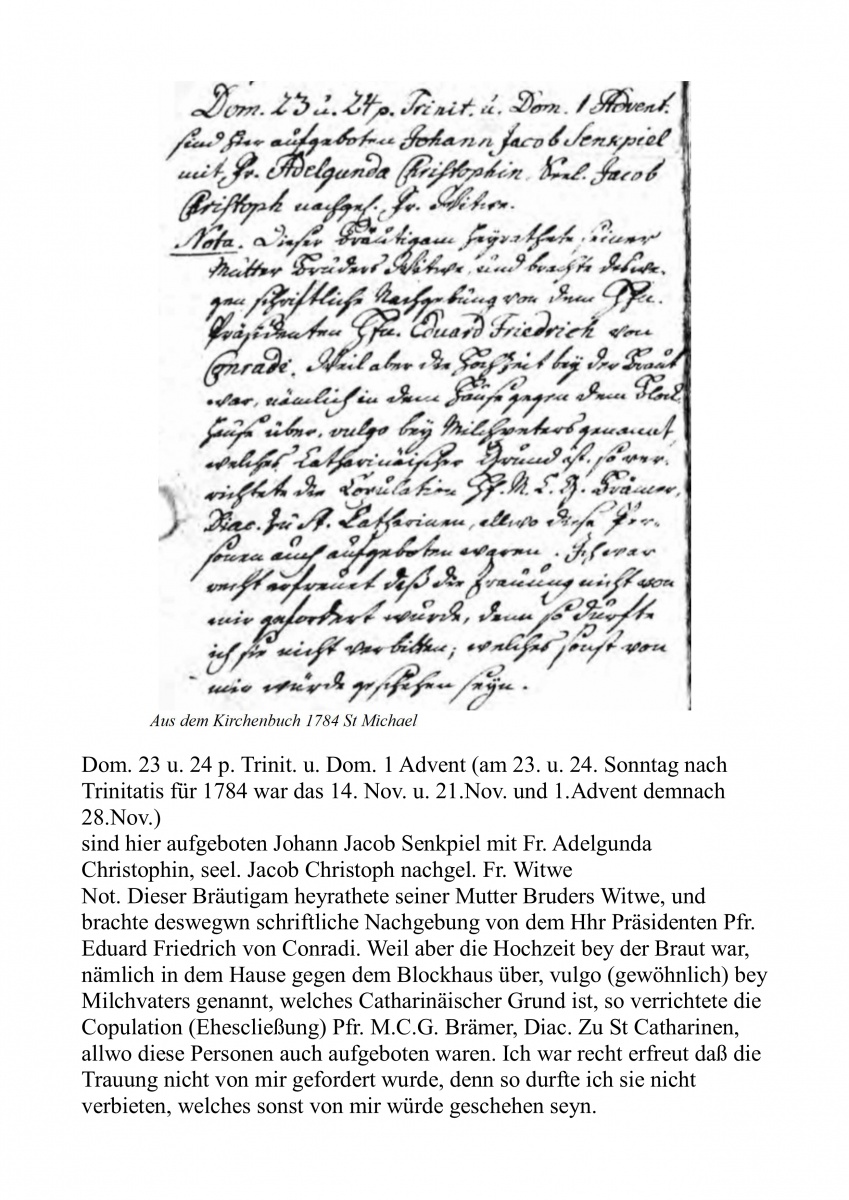 Dom. 23 u. 24 p. Trinit. u. Dom. 1 Advent.
sind hier aufgeboten Johann Jacob Senkpiel
mit Fr. Adelgunda Christophin, Seel. Jacob
Christoph nachgel. Fr. Witwe.
Nota. Dieser Bräutigam heyrathete seiner
Mutter Bruders Witwe, und brachte deswe-
gen schriftliche Nachgebung von dem Hhn.
Präsidenten Hhn. Eduard Friedrich von
Conradi. Weil aber die Hochzeit bey der Braut
war, nämlich in dem Hause gegen dem Block
hause über, vulgo bey Milchpeters genannt,
welches Catharinäischer Grund ist, so ver-
richtete die Copulation H. M. C. G. Brämer,
Diac. zu St. Catharinen, allwo diese Per-
sonen auch aufgeboten waren. Ich war
recht erfreuet daß die Trauung nicht von
mir gefordert wurde, denn so durfte
ich sie nicht verbitten; welches sonst von
mir würde geschehen seyn.
Aus dem Kirchenbuch 1784 St Michael
Dom. 23 u. 24 p. Trinit. u. Dom. 1 Advent (am 23. u. 24. Sonntag nach
Trinitatis für 1784 war das 14. Nov. u. 21.Nov. und 1.Advent demnach
28.Nov.)
sind hier aufgeboten Johann Jacob Senkpiel mit Fr. Adelgunda
Christophin, seel. Jacob Christoph nachgel. Fr. Witwe
Not. Dieser Bräutigam heyrathete seiner Mutter Bruders Witwe, und
brachte deswegwn schriftliche Nachgebung von dem Hhr Präsidenten Pfr.
Eduard Friedrich von Conradi. Weil aber die Hochzeit bey der Braut war,
nämlich in dem Hause gegen dem Blockhaus über, vulgo (gewöhnlich) bey
Milchvaters genannt, welches Catharinäischer Grund ist, so verrichtete die
Copulation (Ehescließung) Pfr. M.C.G. Brämer, Diac. Zu St Catharinen,
allwo diese Personen auch aufgeboten waren. Ich war recht erfreut daß die
Trauung nicht von mir gefordert wurde, denn so durfte ich sie nicht
verbieten, welches sonst von mir würde geschehen seyn.